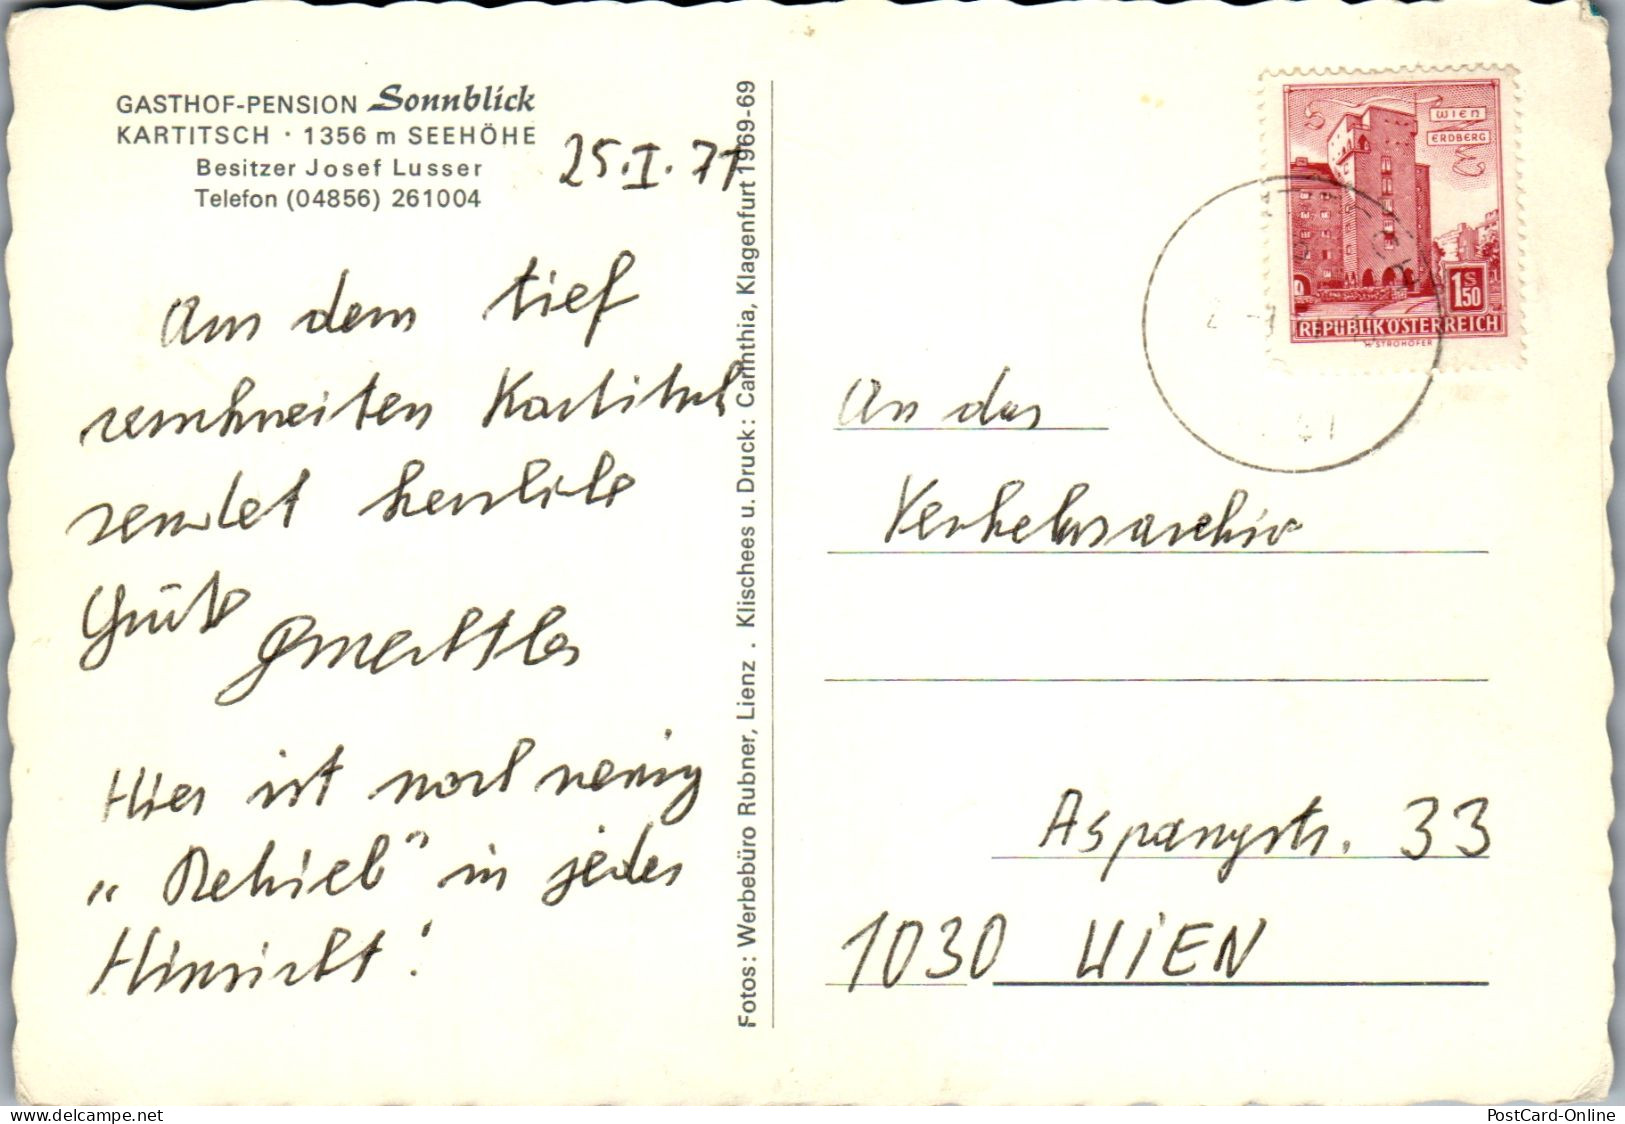 GASTHOF-PENSION Sonnblick
KARTITSCH · 1356 m SEEHÖHE
Besitzer Josef Lusser
Telefon (04856) 261004
25.I.71
Aus dem tief
verschneiten Kartitsch
sendet herzliche
Grüße
Hier ist noch wenig
„Betrieb" in jeder
Hinsicht!
Fotos: Werbebüro Rubner, Lienz . Klischees u. Druck: Carinthia, Klagenfurt 1969-69
WIEN
ERDBERG
1S50
REPUBLIK ÖSTERREICH
H. STROHOFER
An das
Verkehrsarchiv
Aspangstr. 33
1030 WIEN
delcampe.net
PostCard-Online